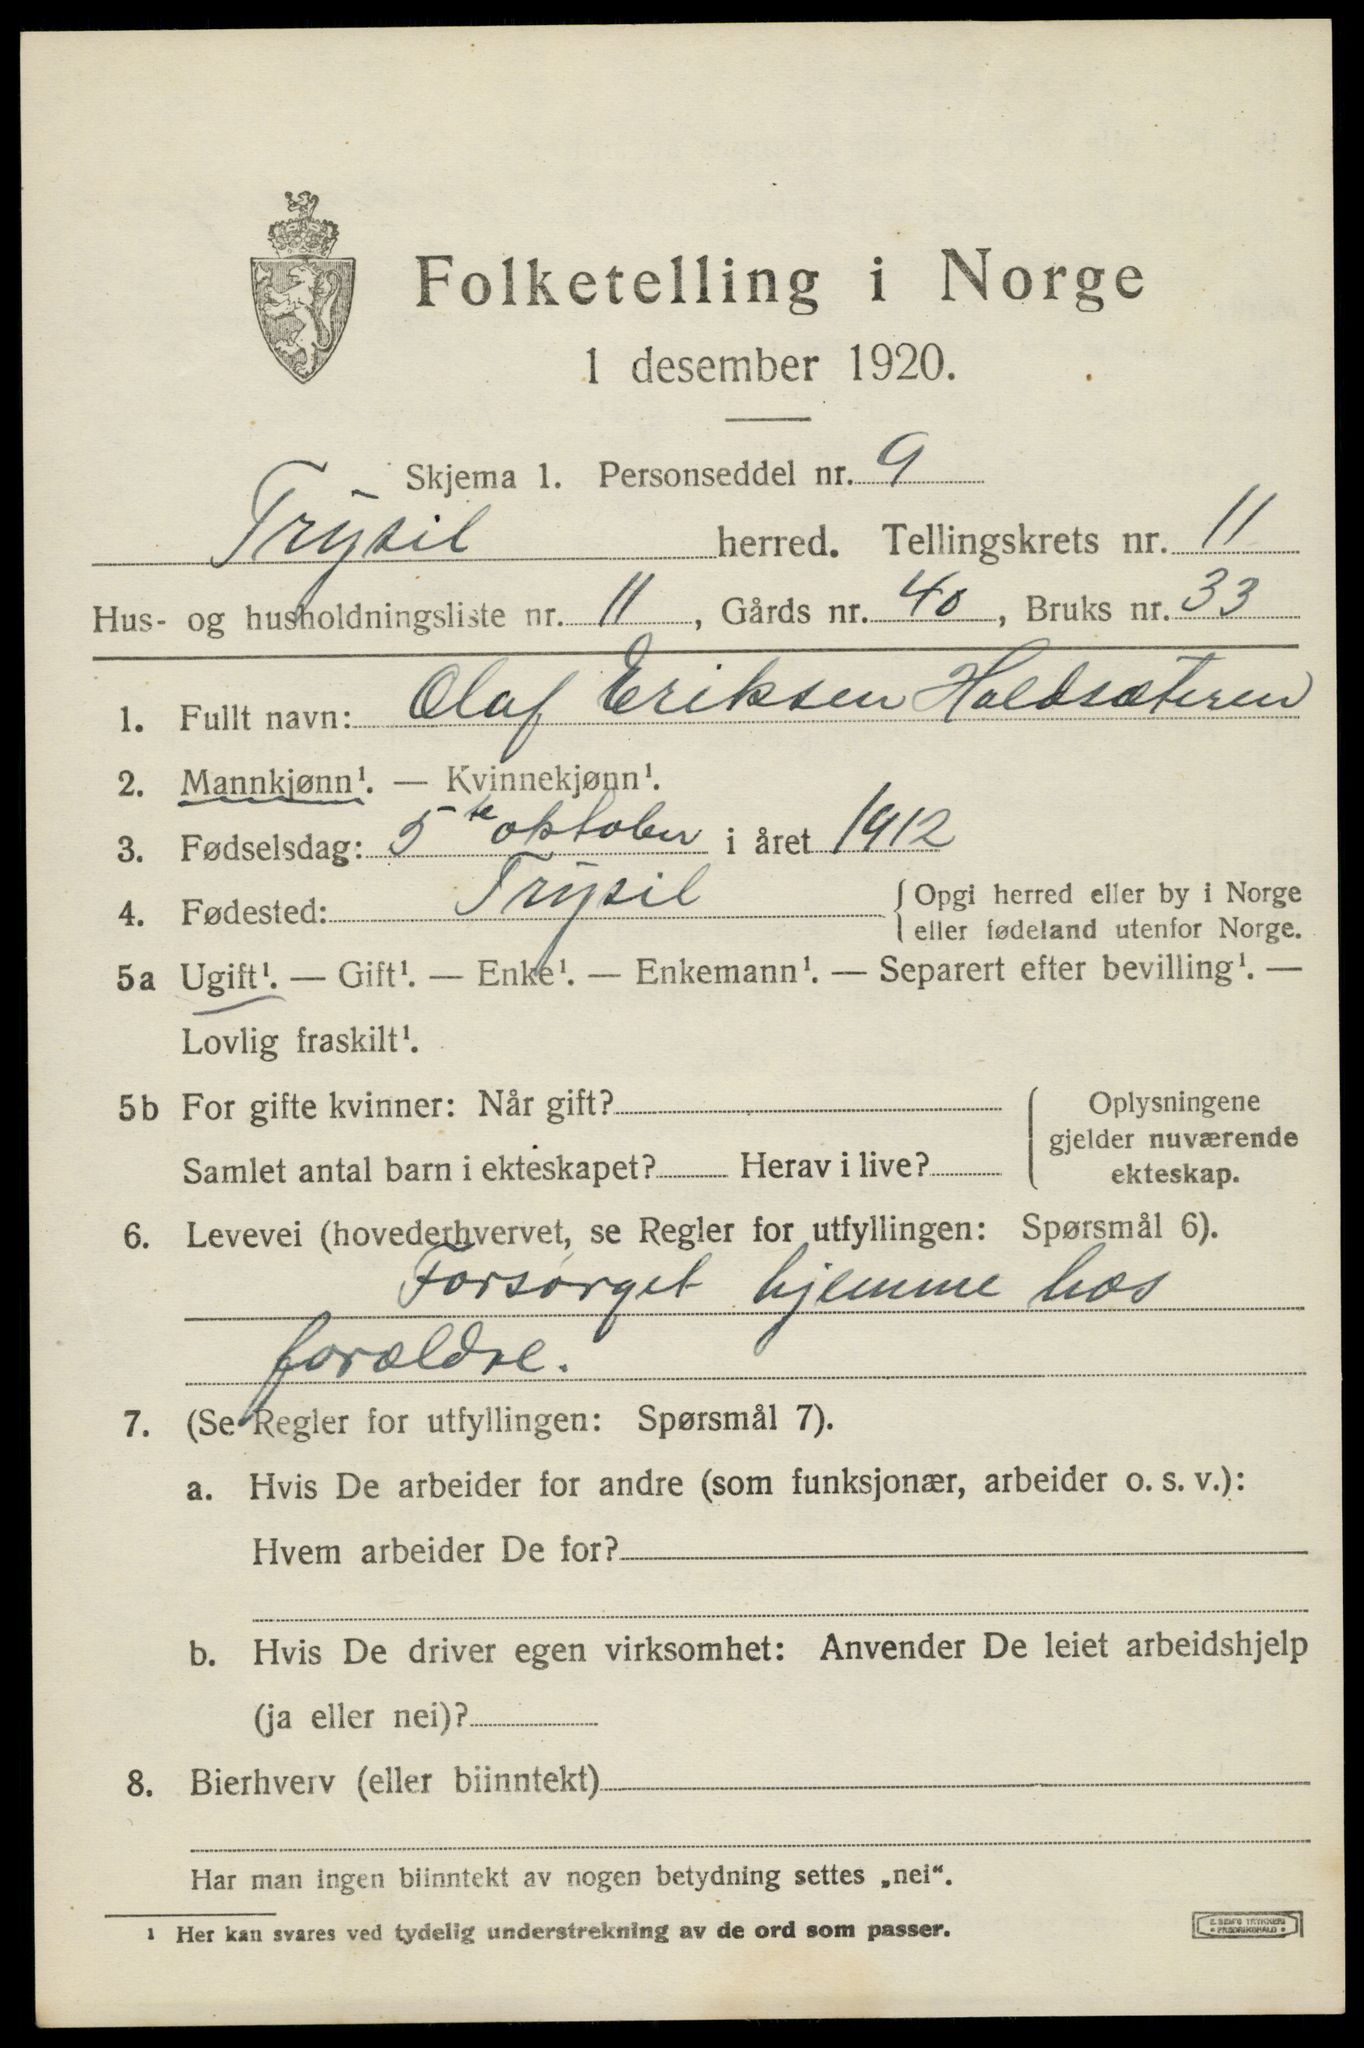 Folketelling i Norge
1 desember 1920.
Skjema 1. Personseddel nr. 9
Trysil herred. Tellingskrets nr. 11
Hus- og husholdningsliste nr. 11, Gårds nr. 40, Bruks nr. 33
1. Fullt navn: Olaf Eriksen Holdsæteren
2. Mannkjønn¹. — Kvinnekjønn¹.
3. Fødselsdag: 5te oktober i året 1912
4. Fødested: Trysil { Opgi herred eller by i Norge
eller fødeland utenfor Norge.
5a Ugift¹. — Gift¹. — Enke¹. — Enkemann¹. — Separert efter bevilling¹. —
Lovlig fraskilt¹.
5b For gifte kvinner: Når gift? { Oplysningene
gjelder nuværende
Samlet antal barn i ekteskapet? Herav i live? ekteskap.
6. Levevei (hovederhvervet, se Regler for utfyllingen: Spørsmål 6).
Forsørget hjemme hos
forældre.
7. (Se Regler for utfyllingen: Spørsmål 7).
a. Hvis De arbeider for andre (som funksjonær, arbeider o. s. v.):
Hvem arbeider De for?
b. Hvis De driver egen virksomhet: Anvender De leiet arbeidshjelp
(ja eller nei)?
8. Bierhverv (eller biinntekt)
Har man ingen biinntekt av nogen betydning settes „nei“.
¹ Her kan svares ved tydelig understrekning av de ord som passer.
E. SEM'S TRYKKERI
FREDRIKSHALD